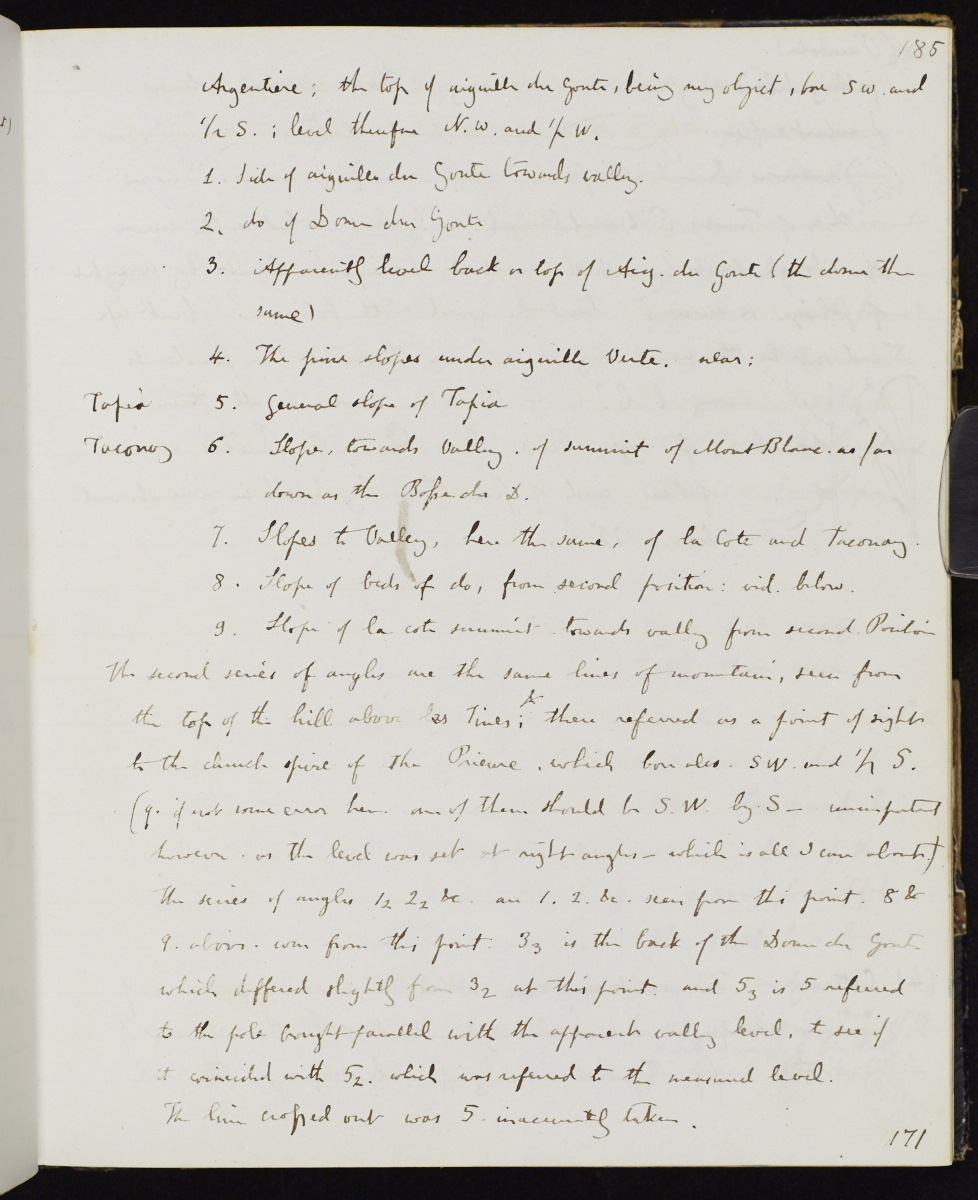 185
Argentiere; the top of aiguille du Goute, being my object, bore SW. and
1/2 S.; level therefore N.W. and 1/2 W.
1. Side of aiguille du Goute towards valley.
2. do of Dome du Goute
3. Apparently level back or top of Aig. du Goute (the dome the
same)
4. The pine slopes under aiguille Verte. near:
Tapia 5. General slope of Tapia
Taconay 6. Slope, towards Valley. of summit of Mont Blanc. as far
down as the Bosse du D.
7. Slopes to Valley, here the same, of la Cote and Taconay.
8. Slope of beds of do, from second position: vid. below.
9. Slope of la cote summit. towards valley from second Position
The second series of angles are the same lines of mountain, seen from
the top of the hill above les Tines; & there referred as a point of sight
to the church spire of the Prieure, which bore also. SW. and 1/2 S.
(q. if not some error here. one of them should be S.W. by. S – unimportant
however. as the level was set at right angles – which is all I care about.)
The series of angles 12 22 &c. are 1. 2. &c. seen from this point. 8 &
9. above. were from this point. 33 is the back of the Dome du Goute
which differed slightly from 32 at this point. and 53 is 5 referred
to the pole bought parallel with the apparent valley level, to see if
it coincided with 52. which was referred to the measured level.
The line crossed out was 5. inaccurately taken.
171